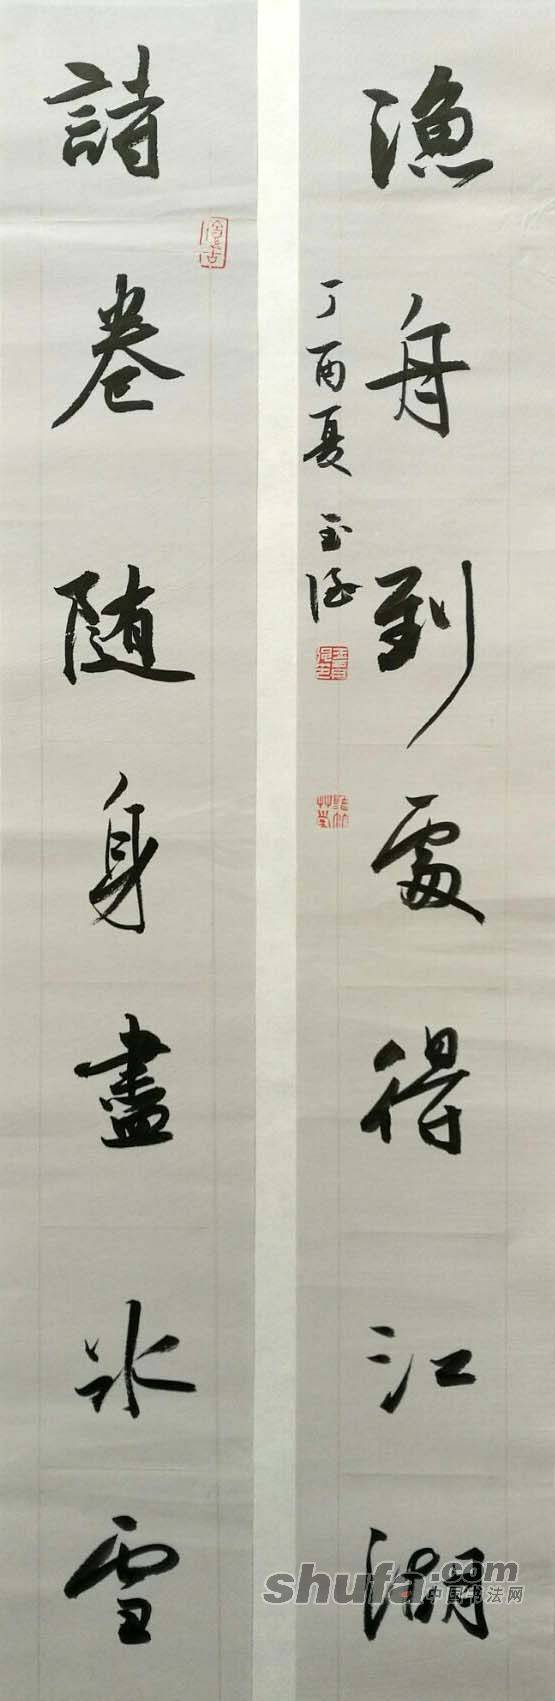 漁舟到處得江湖
詩卷随身盡冰雪
丁酉夏
shufa.com
中国书法网